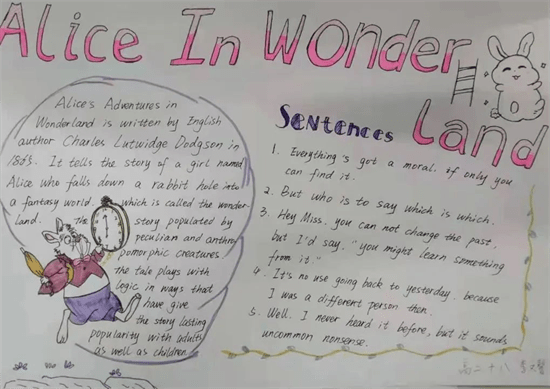 Alice In Wonder
land
Alice's Adventures in
Wonderland is written by English
author Charles Lutwidge Dodgson in
It tells the story of a girl named
Alice who falls down a rabbit hole into
a fantasy world. which is called the wonder-
land. The story populated by
peculian and anthro-
pomorphic creatures
The tale plays with
logic in ways that
have give
the story lasting
popularity with adults
as well as children.
Sentences
1. Everything's got a moral, if only you
can find it.
2. But who is to say which is which.
3. Hey Miss. you can not change the past,
but I'd say, "you might learn something
from it."
4. It's no use going back to yesterday, because
I was a different person then.
5. Well. I never heard it before, but it sounds
uncommon nonsense.
高二十八